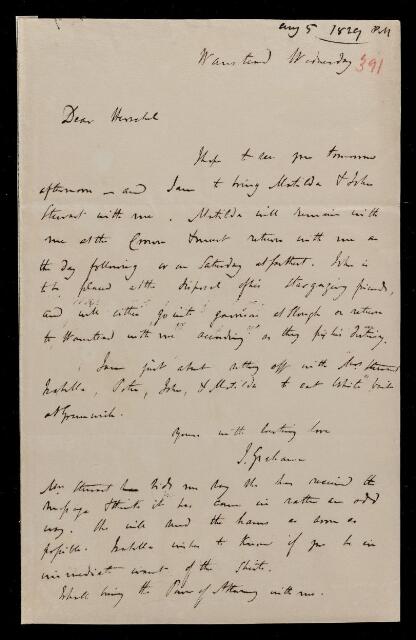 Aug 5 1829 PM
Wanstead Wednesday 391
Dear Herschel
I hope to see you tomorrow
afternoon — and I am to bring Matilda & John
Stewart with me. Matilda will remain with
me at the Crown & must return with me on
the day following or on Saturday at farthest. John is
to be placed at the disposal of his stargazing friends,
and will either go into garrison at Slough or return
to Wanstead with me according as they fix his destiny.
I am just about setting off with Mrs Stewart
Isabella, Peter, John, & Matilda to eat White bait
at Greenwich.
Yours with lasting love
J. Grahame
Mrs Stewart bids me say she has received the
message & thinks it has come in rather an odd
way. She will send the as soon as
possible. Isabella wishes to know if you be in
immediate want of the Shirts.
I shall bring the Power of Attorney with me.